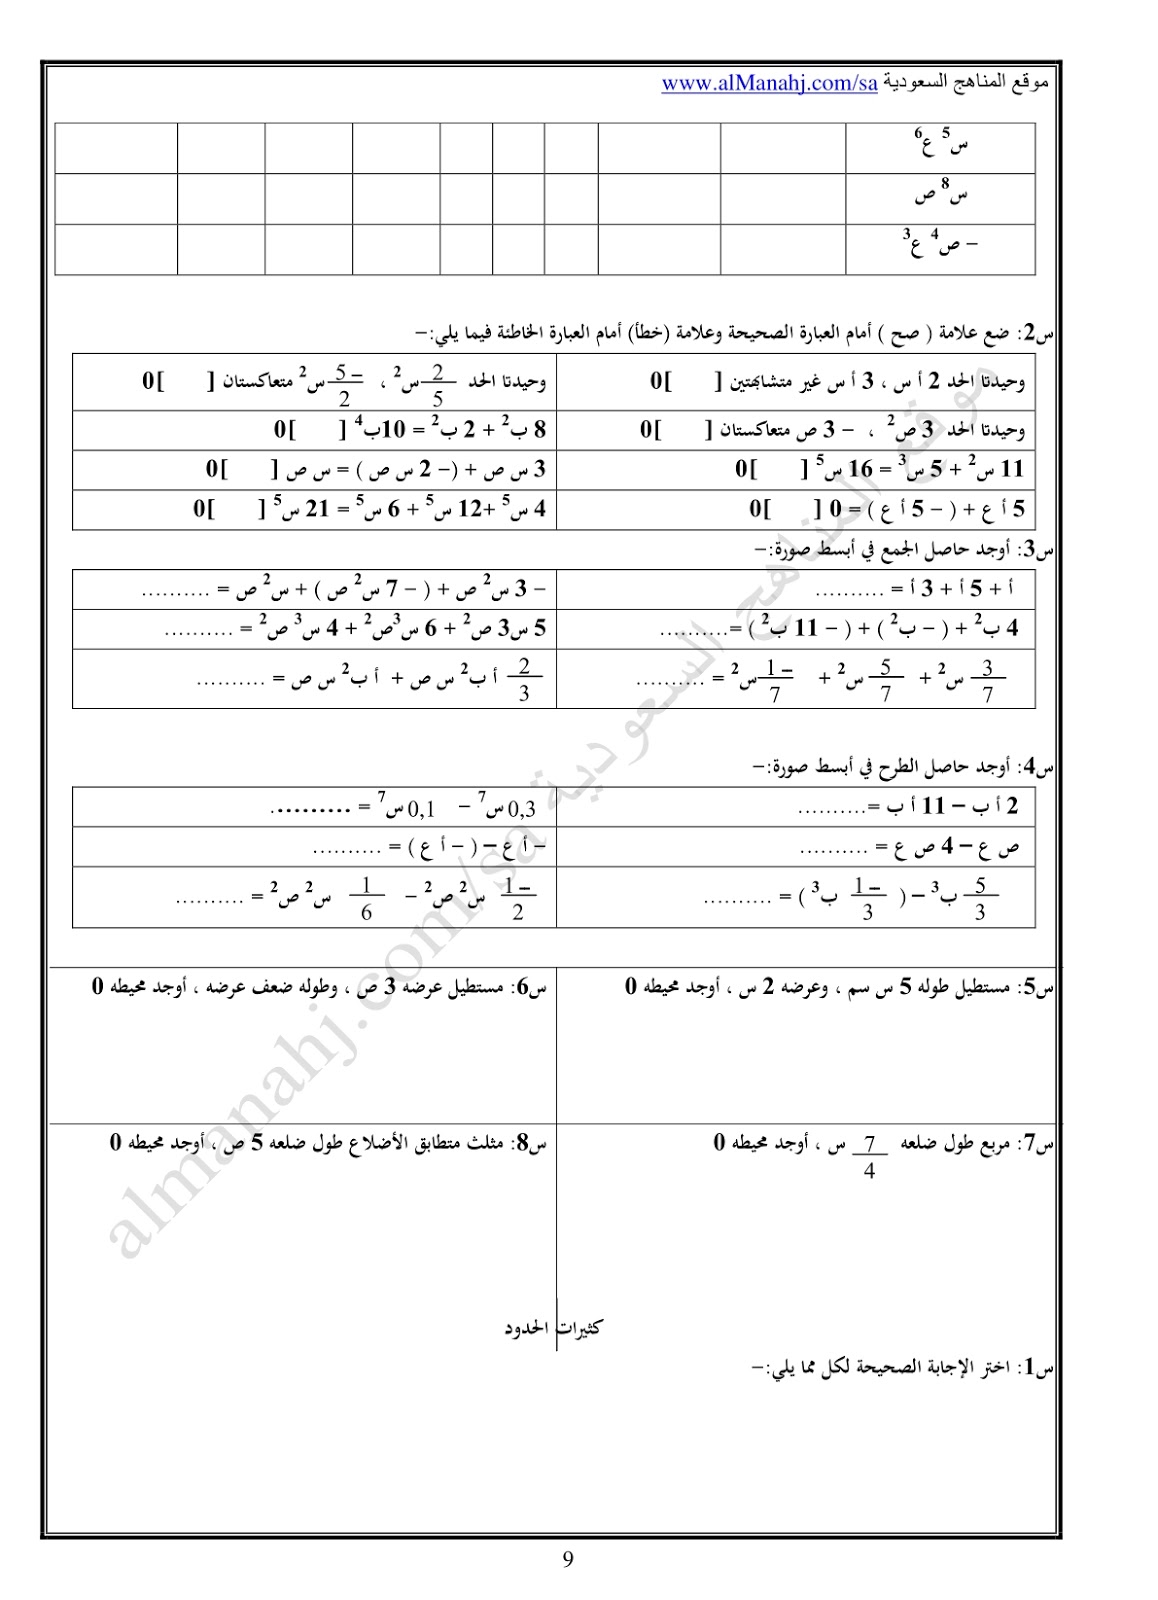 موقع المناهج السعودية www.alManahj.com/sa
س⁵ ع⁶
س⁸ ص
– ص⁴ ع³
س2: ضع علامة ( صح ) أمام العبارة الصحيحة وعلامة (خطأ) أمام العبارة الخاطئة فيما يلي:–
وحيدتا الحد 2 أ س ، 3 أ س غير متشابهتين [ ]0
وحيدتا الحد 2/5 س² ، –5/2 س² متعاكستان [ ]0
وحيدتا الحد 3 ص² ، – 3 ص متعاكستان [ ]0
8 ب² + 2 ب² = 10ب⁴ [ ]0
11 س² + 5 س³ = 16 س⁵ [ ]0
3 س ص + (– 2 س ص ) = س ص [ ]0
5 أ ع + ( – 5 أ ع ) = 0 [ ]0
4 س⁵ +12 س⁵ + 6 س⁵ = 21 س⁵ [ ]0
س3: أوجد حاصل الجمع في أبسط صورة:–
أ + 5 أ + 3 أ = ..........
– 3 س² ص + ( – 7 س² ص ) + س² ص = ..........
4 ب² + ( – ب² ) + ( – 11 ب² ) =..........
5 س3 ص² + 6 س³ص² + 4 س³ ص² = ..........
3/7 س² + 5/7 س² + –1/7 س² = ..........
2/3 أ ب² س ص + أ ب² س ص = ..........
س4: أوجد حاصل الطرح في أبسط صورة:–
2 أ ب – 11 أ ب =..........
0,3 س⁷ – 0,1 س⁷ = ..........
ص ع – 4 ص ع = ..........
– أ ع – ( – أ ع ) = ..........
5/3 ب³ – ( –1/3 ب³ ) = ..........
–1/2 س² ص² – 1/6 س² ص² = ..........
س5: مستطيل طوله 5 س سم ، وعرضه 2 س ، أوجد محيطه 0
س6: مستطيل عرضه 3 ص ، وطوله ضعف عرضه ، أوجد محيطه 0
س7: مربع طول ضلعه 7/4 س ، أوجد محيطه 0
س8: مثلث متطابق الأضلاع طول ضلعه 5 ص ، أوجد محيطه 0
كثيرات الحدود
س1: اختر الإجابة الصحيحة لكل مما يلي:–
9
موقع المناهج السعودية almanahj.com/sa